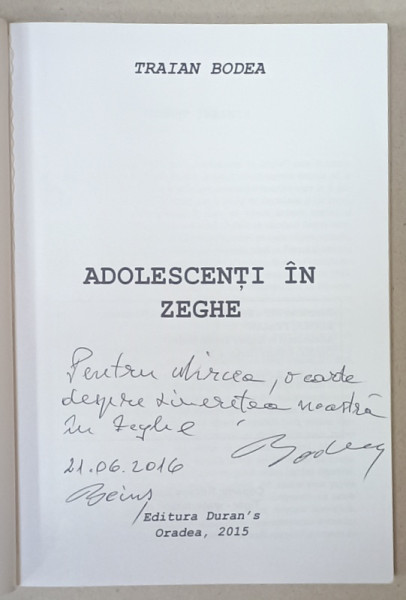 TRAIAN BODEA
ADOLESCENȚI ÎN
ZEGHE
Pentru Mircea, o carte
despre tinerețea noastră
în zeghe
Bodea
21.06.2016
Beiuș
Editura Duran's
Oradea, 2015